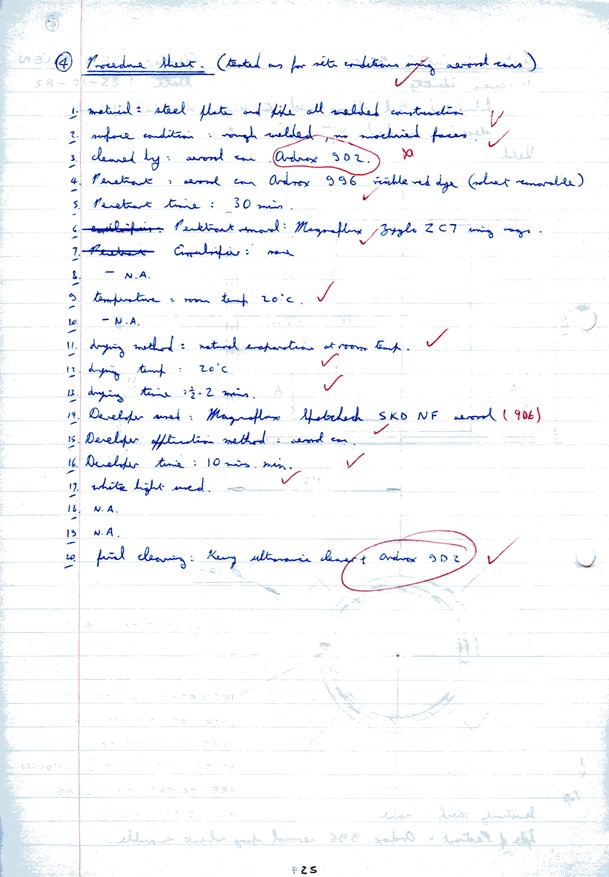 ④ Procedure Sheet. (tested as for site conditions using aerosol cans)
1. material: steel plate and pipe all welded construction
2. surface condition: rough welded, no machined faces.
3. cleaned by: aerosol can Ardrox 9D2.
4. Penetrant: aerosol can Ardrox 996 visible red dye (solvent removable)
5. Penetrant time: 30 min.
6. Penetrant removal: Magnaflux Zyglo ZC7 using rags.
7. Emulsifier: none
8. – N.A.
9. temperature: room temp 20°C.
10. – N.A.
11. drying method: natural evaporation at room temp.
12. drying temp: 20°C
13. drying time: ½-2 mins.
14. Developer used: Magnaflux Spotcheck SKD NF aerosol (9D6)
15. Developer application method: aerosol can.
16. Developer time: 10 mins. min.
17. white light used.
18. N.A.
19. N.A.
20. final cleaning: Kerry ultrasonic cleaner + Ardrox 9D2
25